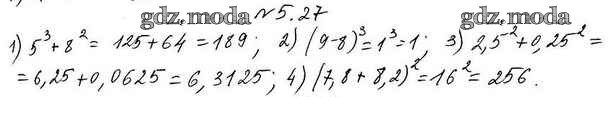 gdz.moda №5.27 gdz.moda
1) 5³+8²= 125+64=189; 2) (9-8)³=1³=1; 3) 2,5²+0,25²=
=6,25+0,0625=6,3125; 4) (7,8+8,2)²=16²=256.